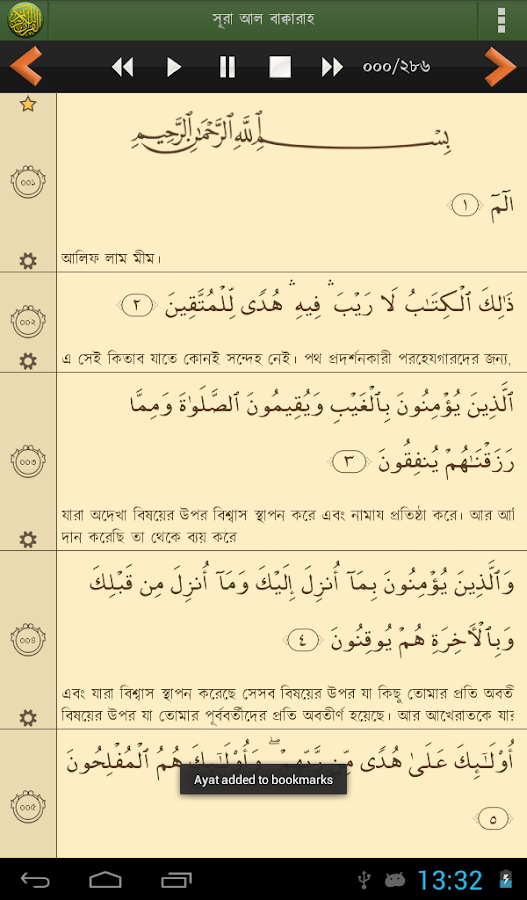 সূরা আল বাক্বারাহ
০০০/২৮৬
بِسْمِ ٱللَّهِ ٱلرَّحْمَٰنِ ٱلرَّحِيمِ
০০১
الٓمٓ ١
আলিফ লাম মীম।
ذَٰلِكَ ٱلْكِتَـٰبُ لَا رَيْبَ ۛ فِيهِ ۛ هُدًى لِّلْمُتَّقِينَ ٢
০০২
এ সেই কিতাব যাতে কোনই সন্দেহ নেই। পথ প্রদর্শনকারী পরহেযগারদের জন্য,
ٱلَّذِينَ يُؤْمِنُونَ بِٱلْغَيْبِ وَيُقِيمُونَ ٱلصَّلَوٰةَ وَمِمَّا
رَزَقْنَـٰهُمْ يُنفِقُونَ ٣
০০৩
যারা অদেখা বিষয়ের উপর বিশ্বাস স্থাপন করে এবং নামায প্রতিষ্ঠা করে। আর
দান করেছি তা থেকে ব্যয় করে
وَٱلَّذِينَ يُؤْمِنُونَ بِمَآ أُنزِلَ إِلَيْكَ وَمَآ أُنزِلَ مِن قَبْلِكَ
وَبِٱلْـَٔاخِرَةِ هُمْ يُوقِنُونَ ٤
০০৪
এবং যারা বিশ্বাস স্থাপন করেছে সেসব বিষয়ের উপর যা কিছু তোমার প্রতি
বিষয়ের উপর যা তোমার পূর্ববর্তীদের প্রতি অবতীর্ণ হয়েছে। আর আখেরাতকে
أُو۟لَـٰٓئِكَ عَلَىٰ هُدًى مِّن رَّبِّهِمْ ۖ وَأُو۟لَـٰٓئِكَ هُمُ ٱلْمُفْلِحُونَ
Ayat added to bookmarks
০০৫
٥
13:32